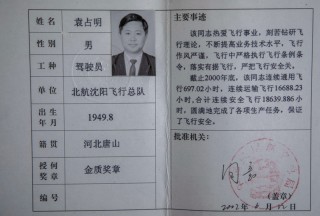 姓名 袁占明
性别 男
工种 驾驶员
单位 北航沈阳飞行总队
出生
年月 1949.8
籍贯 河北唐山
授何
奖章 金质奖章
主要事迹
该同志热爱飞行事业,刻苦钻研飞
行理论,不断提高业务技术水平,飞行
作风严谨,飞行中严格执行飞行条例条
令,落实有据飞行,严把飞行安全关。
截止2000年底,该同志连续通用飞
行697.02小时,连续运输飞行16688.23
小时,合计连续安全飞行18639.886小
时,圆满地完成了各项生产任务,保证
了飞行安全。
批准机关:
(盖章)
2002年